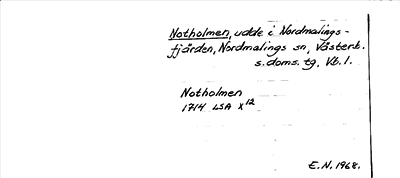 Notholmen, udde i Nordmalings-
fjärden, Nordmalings sn, Västerb.
s. doms. tg, Vb. l.
Notholmen
1714 LSA X 12
E.N. 1968.